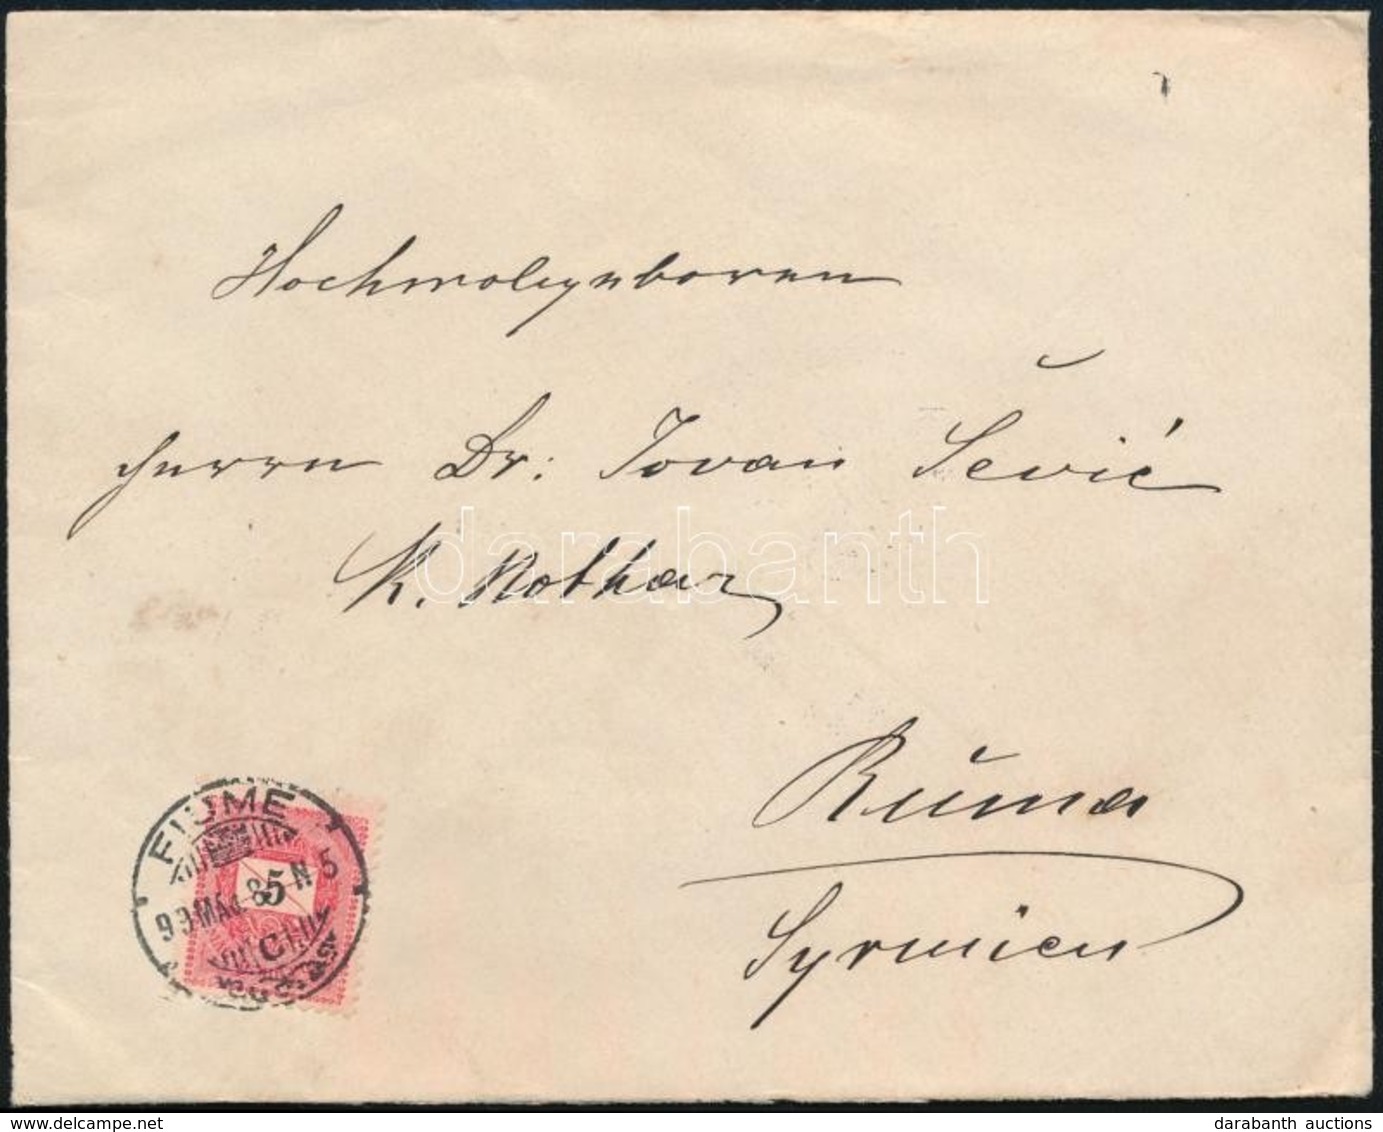 Hochwolgeboren
Herrn Dr: Jovan Šević
K. Nothar
Ruma
Syrmien
FIUME
99 MÁJ. 8 N 5
5
C
darabanth
darabanth auctions